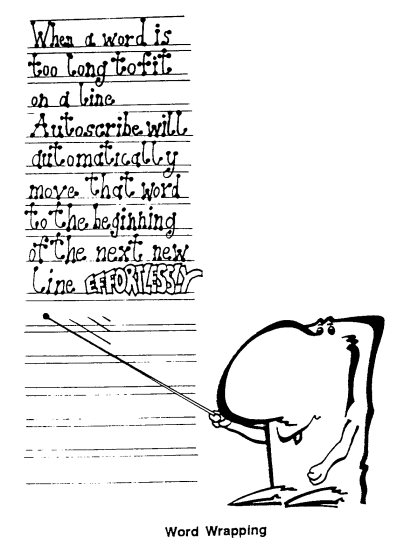 When a word is
too long to fit
on a line
Autoscribe will
automatically
move that word
to the beginning
of the next new
line EFFORTLESSLY
Word Wrapping